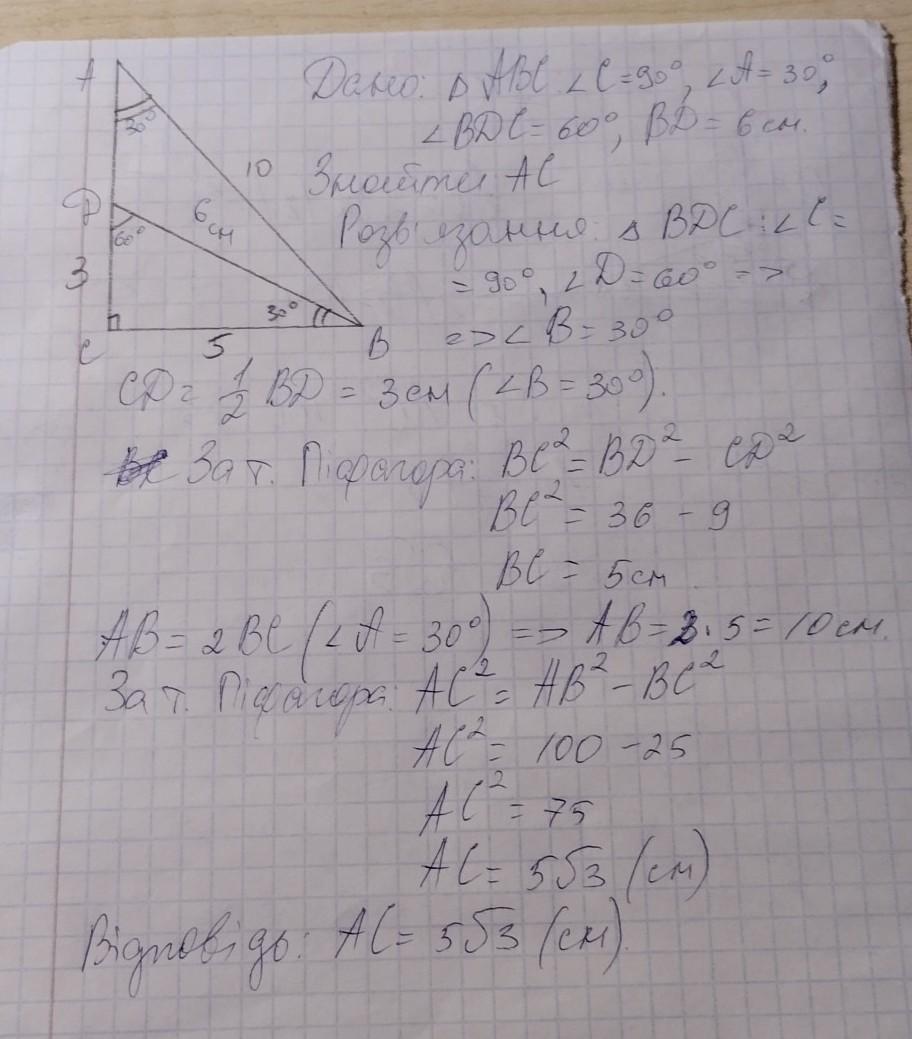 A
30°
10
D
6 см
60°
3
30°
C
5
B
Дано: △ ABC ∠C=90°, ∠A=30°,
∠BDC=60°, BD=6 см.
Знайти AC
Розв'язання: △ BDC: ∠C=
=90°, ∠D=60° =>
=> ∠B=30°
CD= 1/2 BD = 3см (∠B=30°).
За т. Піфагора: BC²=BD²- CD²
BC²= 36 - 9
BC = 5см.
AB=2BC (∠A=30°) => AB=2·5=10см.
За т. Піфагора: AC²=AB²-BC²
AC²= 100-25
AC²=75
AC=5√3 (см)
Відповідь: AC=5√3 (см).